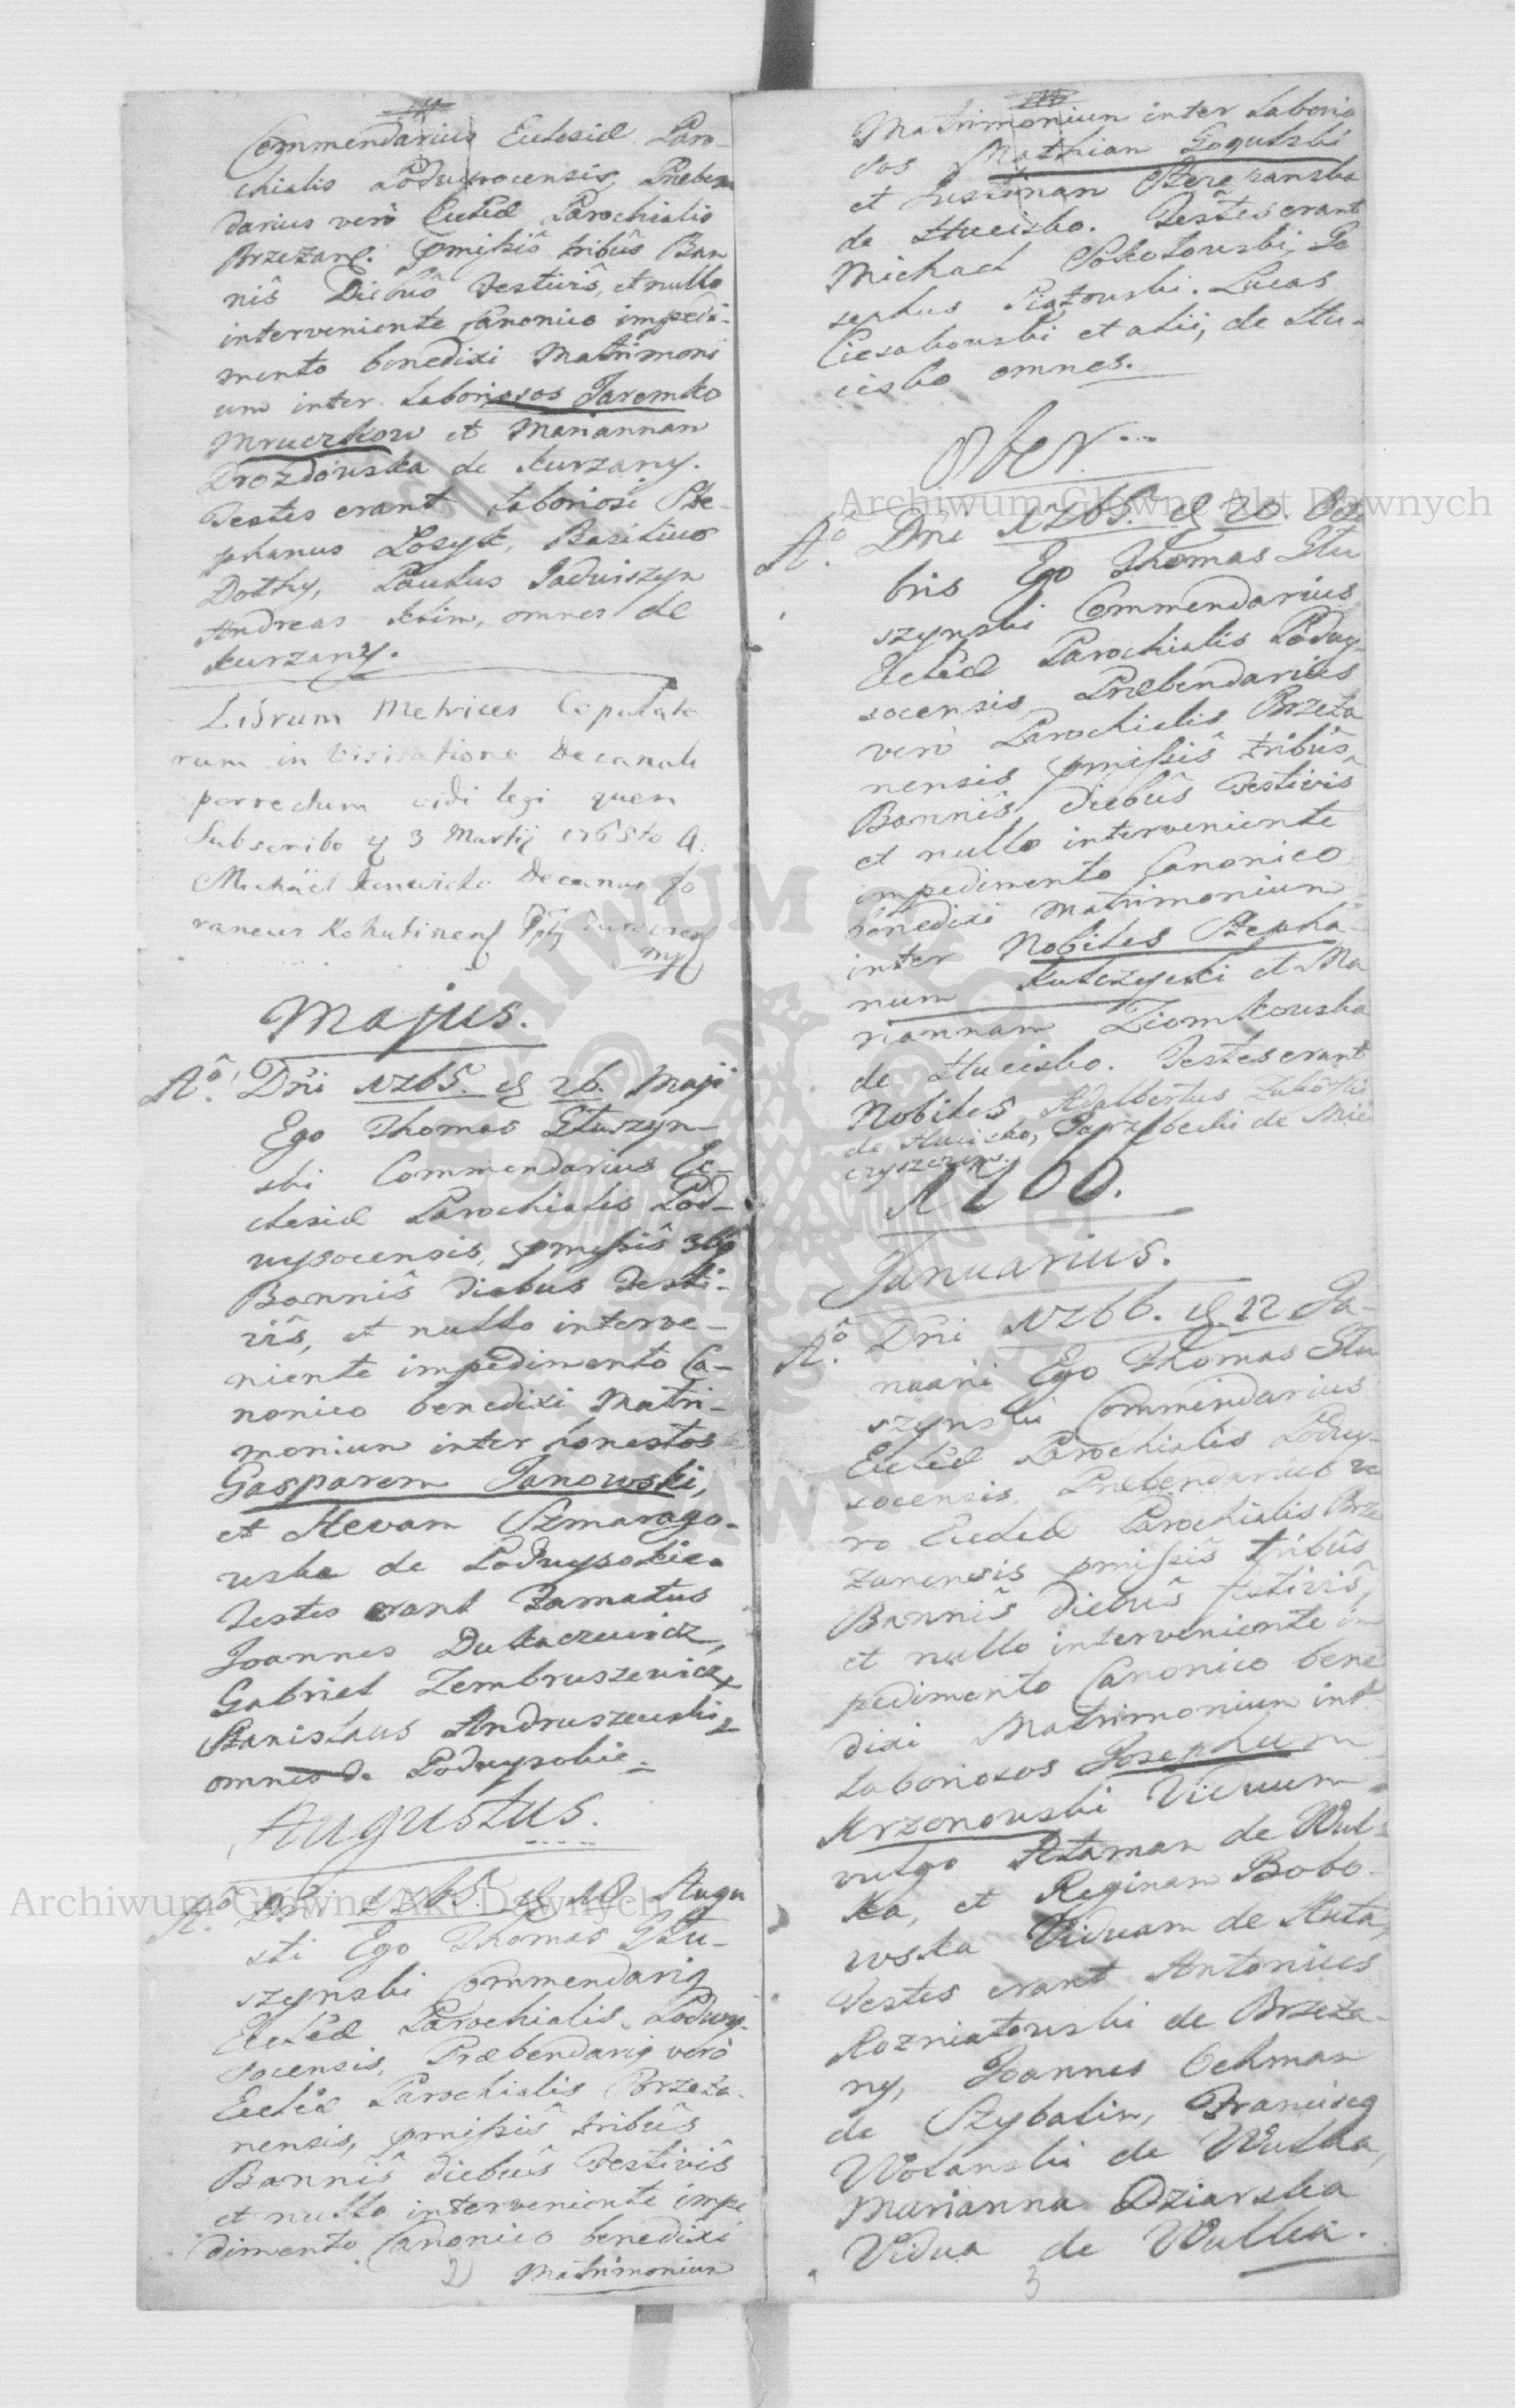 Commendarius Ecclesiæ Paro-
chialis Podwysocensis, Præben
darius verò Ecclêæ Parochialis
Brzeżans: pmissis tribûs Ban
nîs Diebûs Festivîs, et nullo
interveniente Canonico impedi-
mento benedixi Matrimoni
um inter Laboriosos Jaremko
Mruczkow et Mariannam
Drozdowska de Kurzany.
Testes erant Laboriosi Ste-
phanus Losyk, Basilius
Dothy, Paulus Jadwiszyn
Andreas Klim, omnes de
Kurzany.
Librum Metrices Copulato
rum in Visitatione Decanali
porrectum vidi legi quem
Subscribo d 3 Martij 1765to A.
Michäel Decanus fo
raneus
mp
Majus.
Aô. Dni 1765. d 26. Maji
Ego Thomas Głuszyn-
ski Commendarius Ec-
clesiæ Parochialis Pod-
wysocensis, pmissîs 3bg
Bannîs diebus Festi-
vîs, et nullo interve-
niente impedimento Ca-
nonico benedixi Matri-
monium inter honestos
Gasparem Janowski,
et Hevam Szmarago-
wska de Podwysokie.
Testes erant Famatus
Joannes Dukaczewicz,
Gabriel Zembruszewicz,
Stanislaus Andruszewski,
omnes de Podwysokie.
Augustus.
Aô. Dni 1765. d 18. Augu
sti Ego Thomas Głu-
szynski Commendarig
Ecclêæ Parochialis Podwy-
socensis, Præbendarig verò
Ecclêæ Parochialis Brzeża-
nensis, pmissîs tribûs
Bannîs diebûs Festivîs
et nullo interveniente impe
dimento Canonico benedixi
2) Matrimonium
Matrimonium inter Laborio
sos Mathian Gogulski
et Justinam Szczepanska
de Hucisko. Testes erant
Michael Sokolowski, Jo
sephus Piątowski. Lucas
Ciesakowski et alii, de Hu-
cisko omnes.
8ber...
Aô. Dni 1765. d 20. 8bris
bris Ego Thomas Głu
szynski Commendarius
Ecclêæ Parochialis Podwy-
socensis Præbendarius
verò Parochialis Brzeża
nensis pmissîs tribûs
Bannîs diebûs Festivîs
et nullo interveniente
impedimento Canonico
benedixi Matrimonium
inter Nobiles Stepha-
num Kulczycki et Ma
riannam Ziomkowska
de Hucisko. Testes erant
Nobiles Adalbertus
de Hucisko, de Mie
czyszczow.
1766.
Januarius.
Aô. Dni 1766. d. 12 Ja-
nuarii Ego Thomas Głu
szynski Commendarius
Ecclêæ Parochialis Podwy-
socensis, Præbendarius ve
ro Ecclêæ Parochialis Brze
żanensis pmissîs tribûs
Bannîs diebûs festivîs,
et nullo interveniente im
pedimento Canonico bene
dixi Matrimonium inter
Laboriosos Josephum
Krzonowski Viduum
vulgo Ataman de Wul-
ka, et Reginam Bobo-
wska Viduam de Huta,
Testes erant Antonius
Rozniatowski de Brzeża-
ny, Joannes Ochman
de Szybalin, Franciscg
Wolanski de Wulka,
Marianna Dziarska
Vidua de Wulka.
3
Archiwum Główne Akt Dawnych
Archiwum Główne Akt Dawnych
ARCHIWUM GŁÓWNE AKT DAWNYCH